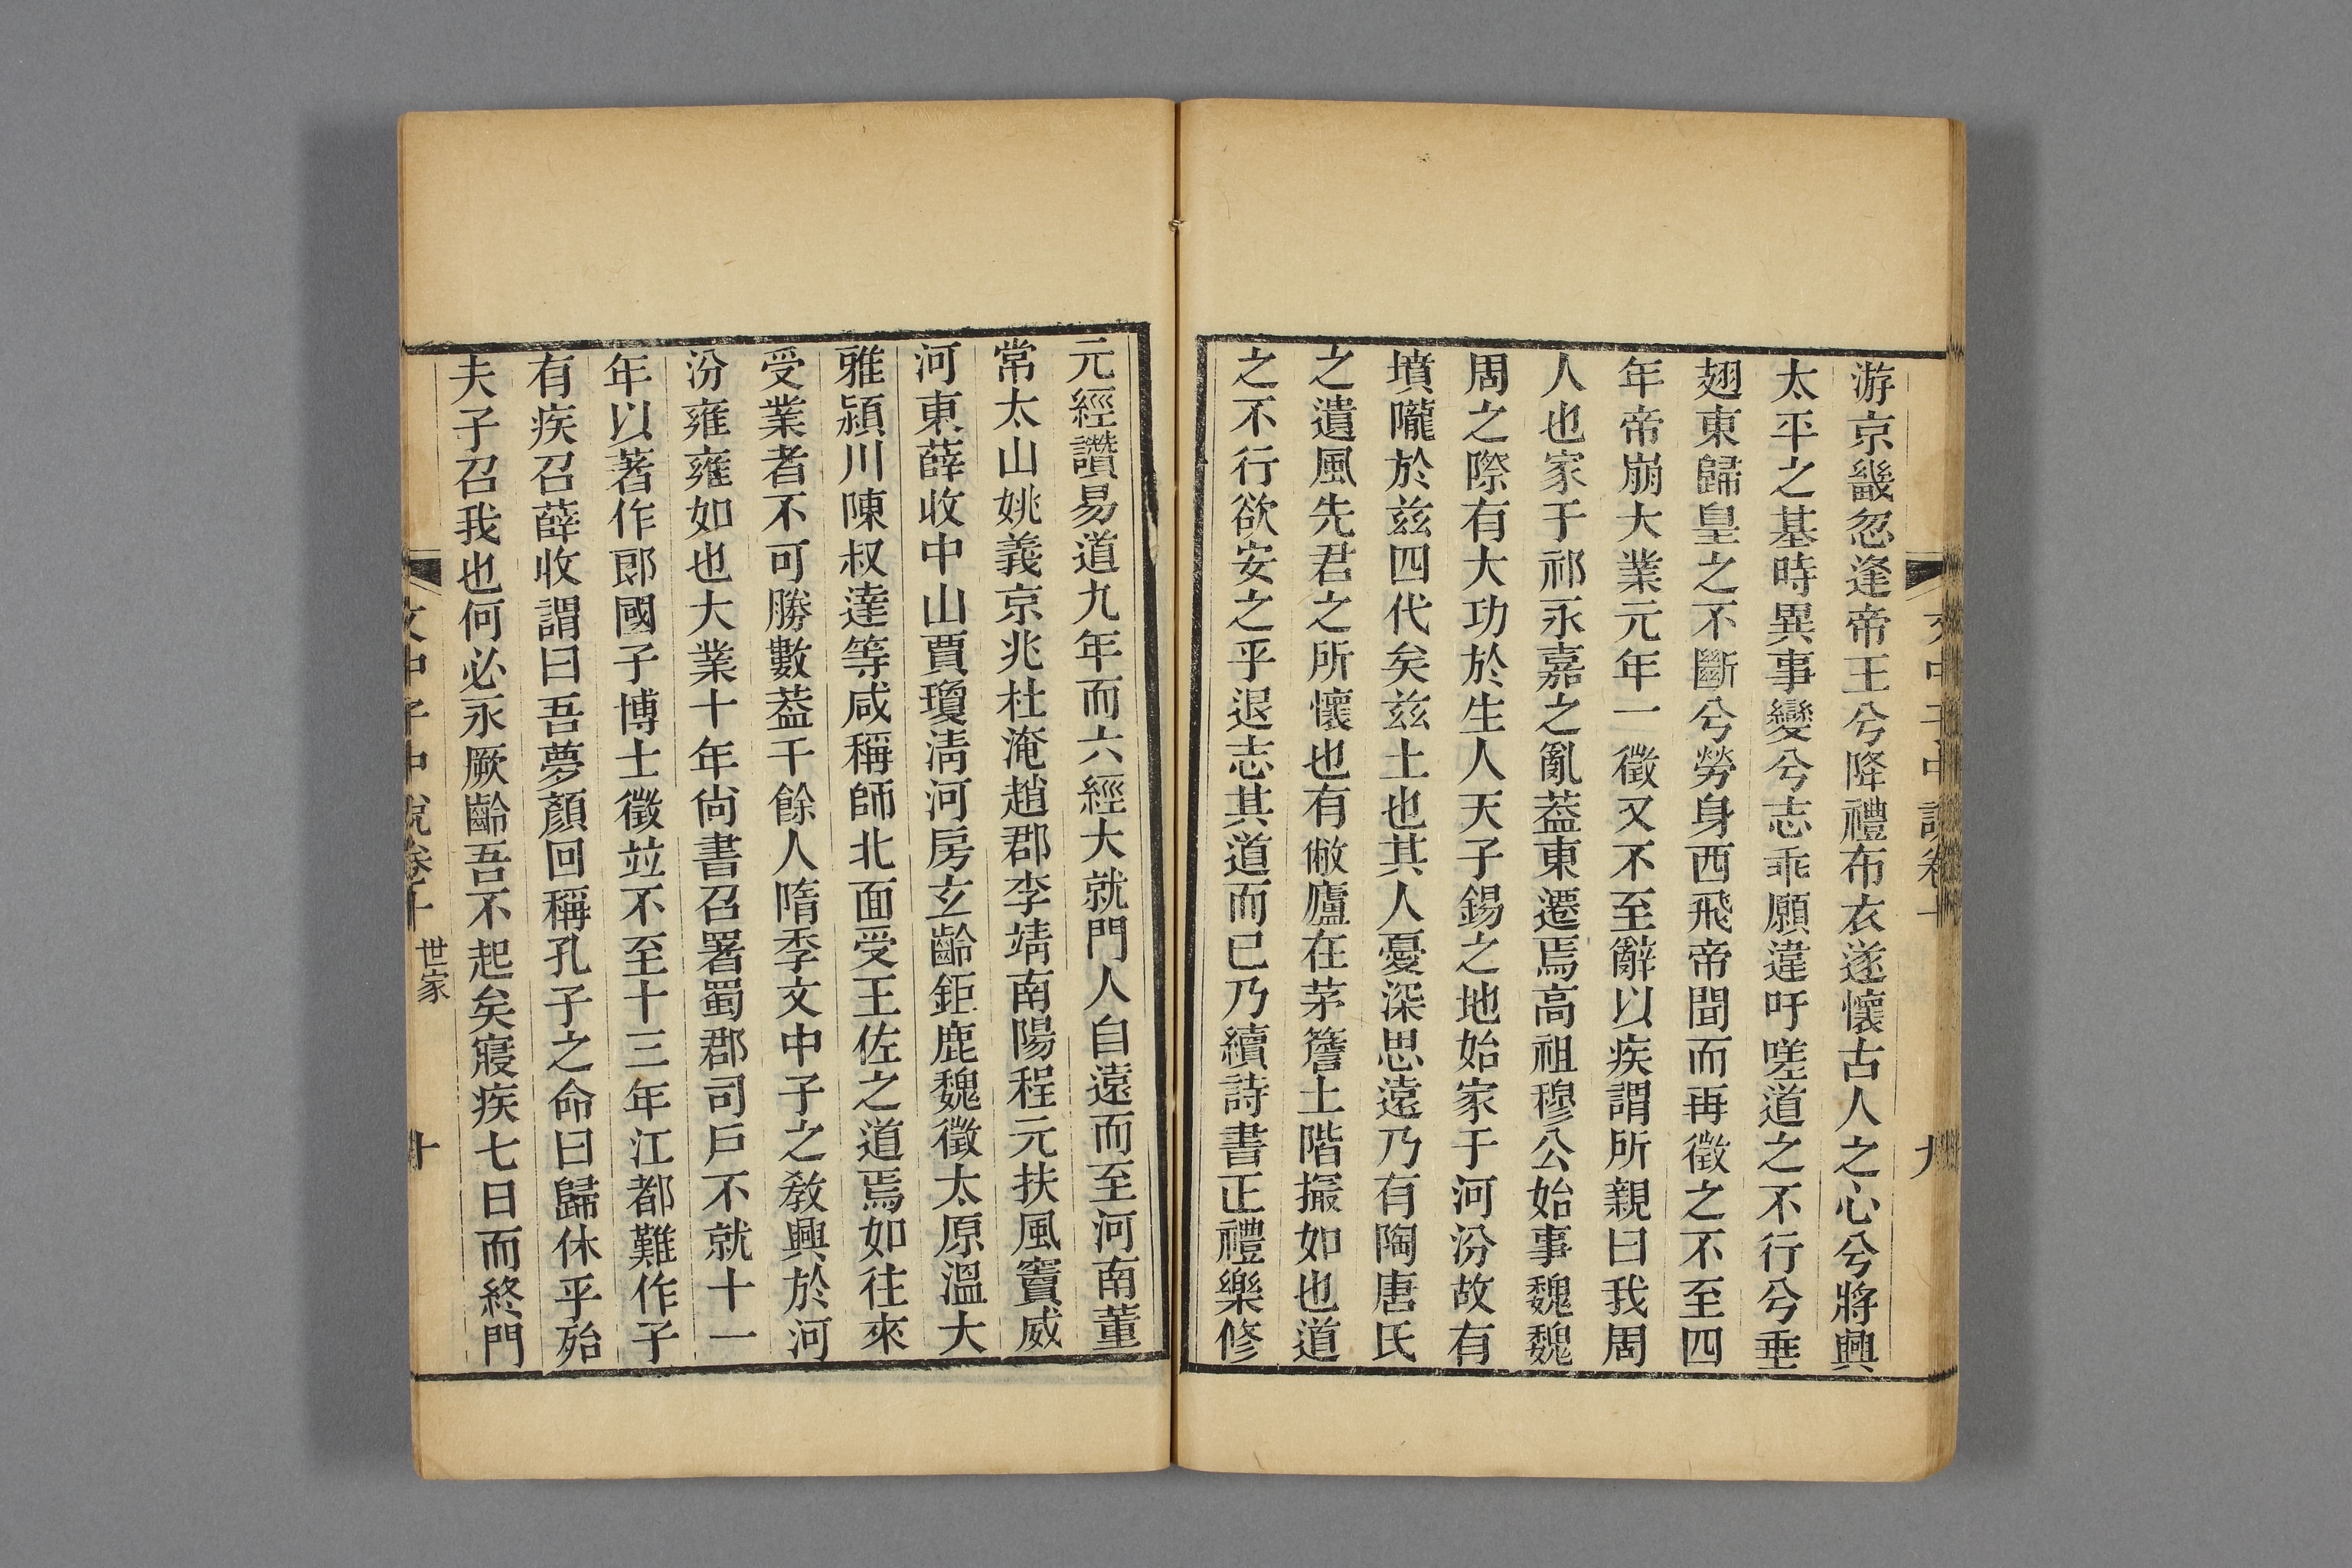 游京畿忽逢帝王兮降禮布衣遂懷古人之心兮將興
太平之基時異事變兮志乖願違吁嗟道之不行兮垂
翅東歸皇之不斷兮勞身西飛帝聞而再徵之不至四
年帝崩大業元年一徵又不至辭以疾謂所親曰我周
人也家于祁永嘉之亂葢東遷焉高祖穆公始事魏魏
周之際有大功於生人天子錫之地始家于河汾故有
墳隴於兹四代矣兹土也其人憂深思遠乃有陶唐氏
之遺風先君之所懷也有敝廬在茅簷土階撮如也道
之不行欲安之乎退志其道而已乃續詩書正禮樂修
元經讚易道九年而六經大就門人自遠而至河南董
常太山姚義京兆杜淹趙郡李靖南陽程元扶風竇威
河東薛收中山賈瓊淸河房玄齡鉅鹿魏徵太原溫大
雅潁川陳叔達等咸稱師北面受王佐之道焉如往來
受業者不可勝數葢千餘人隋季文中子之敎興於河
汾雍雍如也大業十年尙書召署蜀郡司戶不就十一
年以著作郎國子博士徵竝不至十三年江都難作子
有疾召薛收謂曰吾夢顏回稱孔子之命曰歸休乎殆
夫子召我也何必永厥齡吾不起矣寢疾七日而終門
文中子中說卷十
世家
十